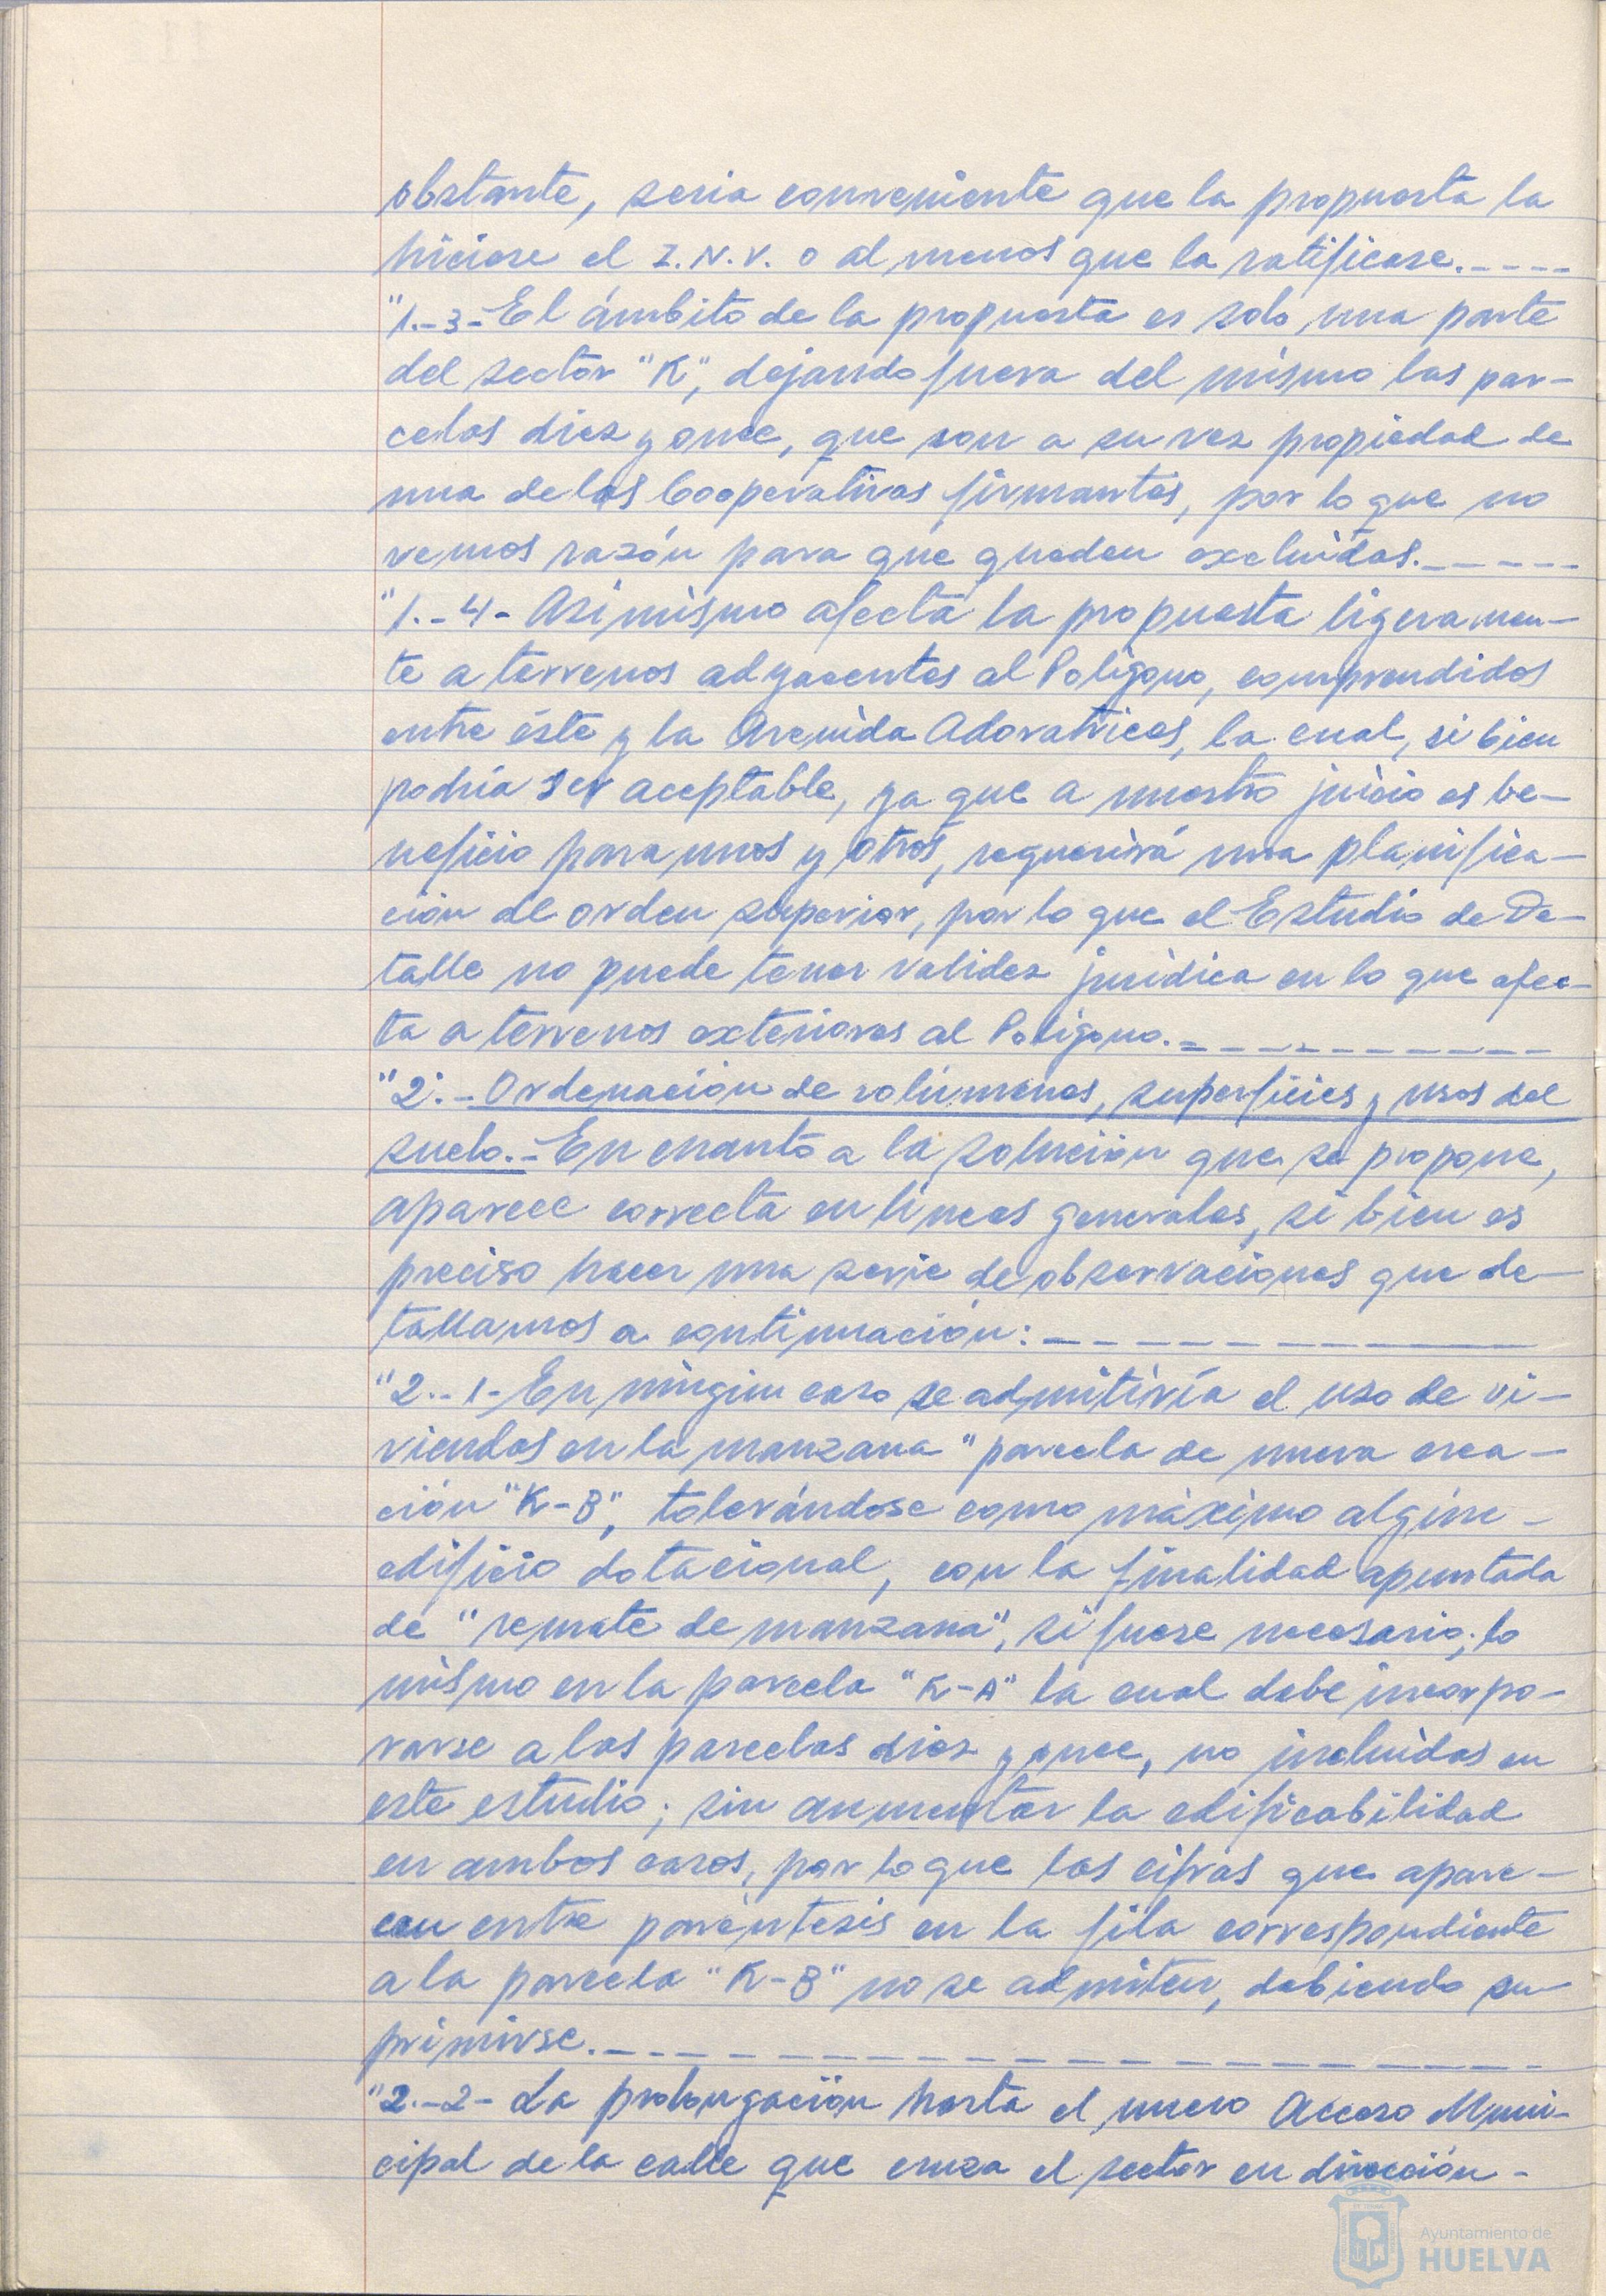 obstante, seria conveniente que la propuesta la
hiciese el I.N.V. o al menos que la ratificase.-----
"1.-3-El ámbito de la propuesta es solo una parte
del sector "K", dejando fuera del mismo las par-
celas diez y once, que son a su vez propiedad de
una de las Cooperativas firmantes, por lo que no
vemos razón para que queden excluidas.------
"1.-4- Asimismo afecta la propuesta ligeramen-
te a terrenos adyacentes al Poligono, comprendidos
entre éste y la Avenida Adoratrices, la cual, si bien
podria ser aceptable, ya que a nuestro juicio es be-
neficio para unos y otros, requerirá una planifica-
ción de orden superior, por lo que el Estudio de De-
talle no puede tener validez juridica en lo que afec-
ta a terrenos exteriores al Poligono.-----------
"2.-Ordenación de volúmenes, superficies y usos del
suelo.-En cuanto a la solución que se propone,
aparece correcta en lineas generales, si bien es
preciso hacer una serie de observaciones que de-
tallamos a continuación:-----------
"2.-1-En ningún caso se admitiría el uso de vi-
viendas en la manzana "parcela de nueva crea-
ción "K-B", tolerándose como máximo algún-
edificio dotacional, con la finalidad apuntada
de "remate de manzana", si fuese necesario; lo
mismo en la parcela "K-A" la cual debe incorpo-
rarse a las parcelas diez y once, no incluidas en
este estudio; sin aumentar la edificabilidad
en ambos casos, por lo que las cifras que apare-
cen entre paréntesis en la fila correspondiente
a la parcela "K-B" no se admiten, debiendo su-
primirse.------------------
"2.-2- La prolongación hasta el nuevo Acceso Muni-
cipal de la calle que cruza el sector en dirección-
Ayuntamiento de
HUELVA